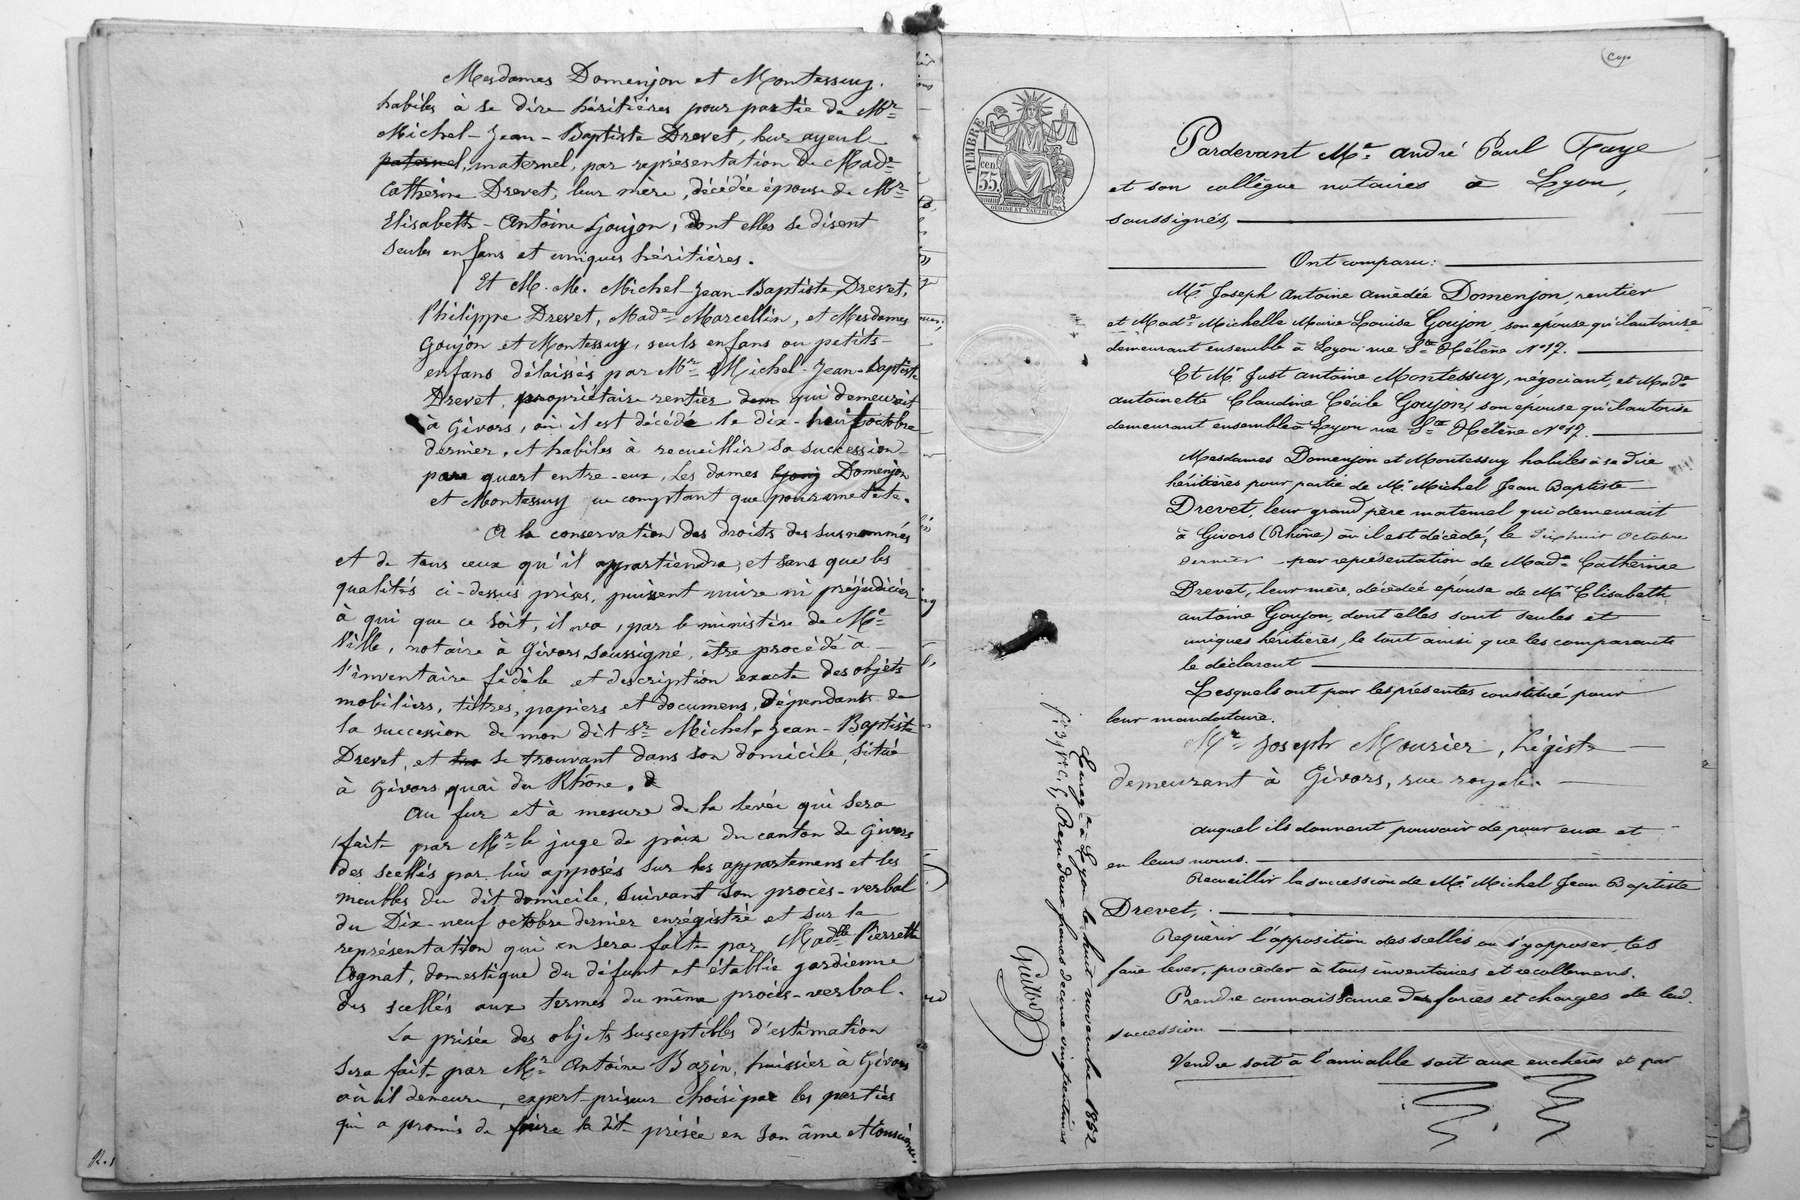 Mesdames Domenjon et Montessuy.
habiles à se dire héritières pour partie de Mr
Michel-Jean-Baptiste Drevet, leur ayeul
paternel, maternel, par représentation de Made
Catherine Drevet, leur mère, décédée épouse de Mr
Elisabeth-Antoine Goujon, dont elles se disent
seules enfans et uniques héritières.
Et M. M. Michel-Jean-Baptiste Drevet,
Philippe Drevet, Made Marcellin, et Mesdames
Goujon et Montessuy, seuls enfans ou petits-
enfans délaissés par Mr Michel-Jean-Baptiste
Drevet, propriétaire rentier qui demeurait
à Givors, où il est décédé le dix-huit octobre
dernier, et habiles à recueillir sa succession
par quart entre-eux, les dames Domenjon
et Montessuy ne comptant que pour une tête.
A la conservation des droits des susnommés
et de tous ceux qu'il appartiendra, et sans que les
qualités ci-dessus prises, puissent nuire ni préjudicier
à qui que ce soit, il va, par le ministère de Me
Ville, notaire à Givors soussigné, être procédé à
l'inventaire fidèle et description exacte des objets
mobiliers, titres, papiers et documens, dépendants de
la succession de mon dit Sr Michel-Jean-Baptiste
Drevet, et se trouvant dans son domicile, situé
à Givors quai du Rhône.
Au fur et à mesure de la levée qui sera
faite par Mr le juge de paix du canton de Givors
des scellés par lui apposés sur les appartemens et les
meubles du dit domicile, suivant son procès-verbal
du Dix-neuf octobre dernier enrégistré et sur la
représentation qui en sera faite par Madlle Pierrette
Cognat, domestique du défunt et établie gardienne
des scellés aux termes du même procès-verbal.
La prisée des objets susceptibles d'estimation
sera faite par Mr Antoine Bazin, huissier à Givors
où il demeure, expert-priseur choisi par les parties
qui a promis de faire la dite prisée en son âme et conscience.
R.
Cop
TIMBRE
35 cen.
OUDINÉ ET VAUTHIER
Pardevant Me André Paul Faye
et son collègue notaires à Lyon,
soussignés,
Ont comparu:
Mr Joseph Antoine Amédée Domenjon, rentier
et Made Michelle Marie Louise Goujon, son épouse qu'il autorise
demeurant ensemble à Lyon rue Ste Hélène No 17.
Et Mr Just Antoine Montessuy, négociant, et Made
Antoinette Claudine Cécile Goujon, son épouse qu'il autorise
demeurant ensemble à Lyon rue Ste Hélène No 17.
Mesdames Domenjon et Montessuy habiles à se dire
héritières pour partie de Mr Michel Jean Baptiste
Drevet, leur grand père maternel qui demeurait
à Givors (Rhône) où il est décédé, le dix huit octobre
dernier par représentation de Made Catherine
Drevet, leur mère, décédée épouse de Mr Elisabeth
Antoine Goujon, dont elles sont seules et
uniques héritières, le tout ainsi que les comparants
le déclarent
Lesquels ont par les présentes constitué pour
leur mandataire.
Mr Joseph Mourier, Légiste
demeurant à Givors, rue royale.
auquel ils donnent pouvoir de pour eux et
en leurs noms.
Recueillir la succession de Mr Michel Jean Baptiste
Drevet,
Requérir l'apposition des scellés ou s'y opposer, les
faire lever, procéder à tous inventaires et recollemens.
Prendre connaissance des forces et charges de lad.
succession
Vendre soit à l'amiable soit aux enchères et par
Enregé à Lyon le huit novembre 1862
Reçu deux francs decime vingt centimes